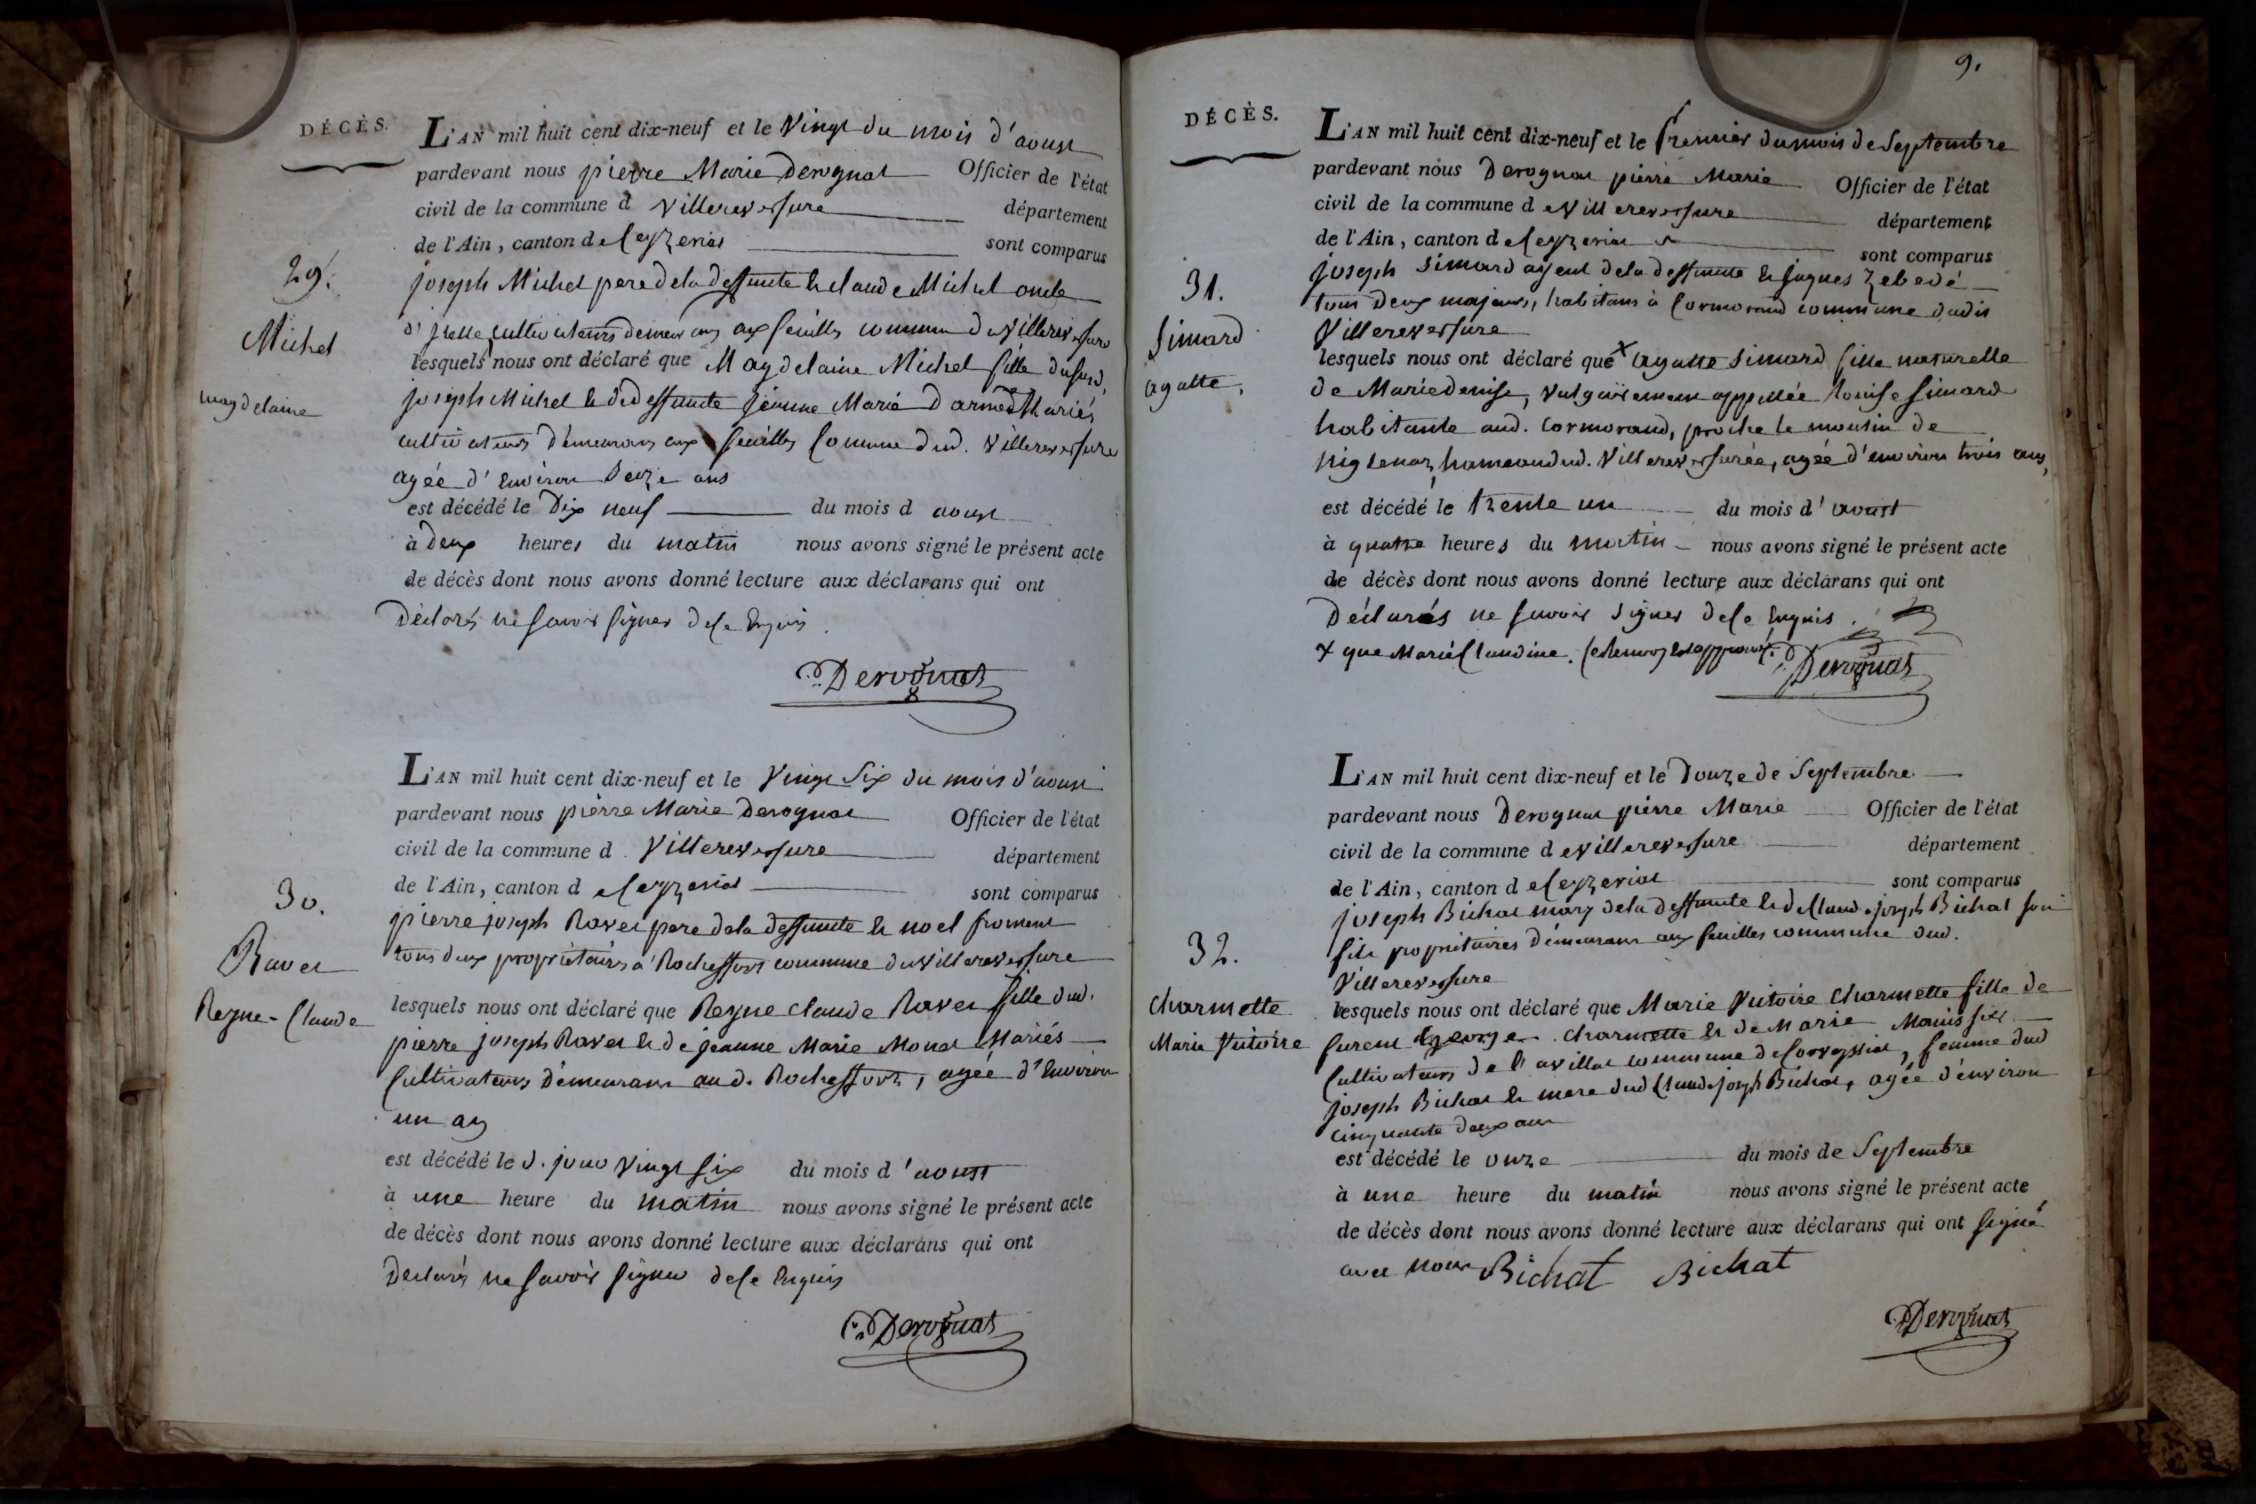 DÉCÈS.
L'AN mil huit cent dix-neuf et le Vingt du mois d'aoust
pardevant nous pierre Marie Derognat Officier de l'état
civil de la commune d Villereversure département
de l'Ain, canton de Ceyzeriat sont comparus
29.
Michel
magdelaine
joseph Michel pere de la deffunte & claude Michel oncle
d'jcelle, cultivateurs demeurans aux feuilles commune de Villereversure
lesquels nous ont déclaré que Magdelaine Michel fille dususd.
joseph Michel & de deffunte jeanne Marie Mariés
cultivateurs demeurans aux feuilles Commune dud. Villereversure
agée d'Environ ans
est décédé le Dix neuf du mois d aoust
à Deux heures du matin nous avons signé le présent acte
de décès dont nous avons donné lecture aux déclarans qui ont
Déclarés ne Savoir Signer de Ce Enquis.
Derognat
L'AN mil huit cent dix-neuf et le Vingt Six du mois d'aoust
pardevant nous pierre Marie Derognat Officier de l'état
civil de la commune d Villereversure département
de l'Ain, canton d eCeyzeriat sont comparus
30.
Ravet
Reyne-Claude
pierre joseph Ravet pere dela deffunte & noel froment
tous deux propriétaires à Rocheffort commune de Villereversure
lesquels nous ont déclaré que Reyne Claude Ravet fille dud.
pierre joseph Ravet & de jeanne Marie Monet Mariés
Cultivateurs demeurans aud. Rocheffort, agée d'Environ
un an
est décédé le d. jour Vingt six du mois d'aoust
à une heure du matin nous avons signé le présent acte
de décès dont nous avons donné lecture aux déclarans qui ont
Déclarés ne Savoir Signer de Ce Enquis
Derognat
9.
DÉCÈS.
L'AN mil huit cent dix-neuf et le Premier du mois de Septembre
pardevant nous Derognat pierre Marie Officier de l'état
civil de la commune d eVillereversure département
de l'Ain, canton d eCeyzeriat sont comparus
31.
Simard
agatte.
joseph Simard ayeul dela deffunte & jaques Zebedé
tous Deux majeurs, habitans à Cormorand commune dudit
Villereversure
lesquels nous ont déclaré que x agatte Simard fille naturelle
de Marie denise, Vulgairement appellée Louise Simard
habitante aud. Cormorand, proche le moulin de
hameau dud. Villereversure, agée d'environ trois ans,
est décédé le trente un du mois d'aoust
à quatre heures du matin nous avons signé le présent acte
de décès dont nous avons donné lecture aux déclarans qui ont
Déclarés ne Savoir Signer de Ce Enquis.
x que Marie Claudine. Ce Renvoy est approuvé.
Derognat
L'AN mil huit cent dix-neuf et le Douze de Septembre
pardevant nous Derognat pierre Marie Officier de l'état
civil de la commune d eVillereversure département
de l'Ain, canton d eCeyzeriat sont comparus
32.
Charmette
Marie Victoire
joseph Bichat mary dela deffunte & de Claude joseph Bichat son
fils propriétaires demeurans aux feuilles commune dud.
Villereversure
lesquels nous ont déclaré que Marie Victoire Charmette fille de
furent george Charmette & de Marie
Cultivateurs de commune de femme dud
joseph Bichat & mere dud Claude joseph Bichat, agée d'environ
cinquante deux ans
est décédé le onze du mois de Septembre
à une heure du matin nous avons signé le présent acte
de décès dont nous avons donné lecture aux déclarans qui ont signé
avec nous Bichat Bichat
Derognat